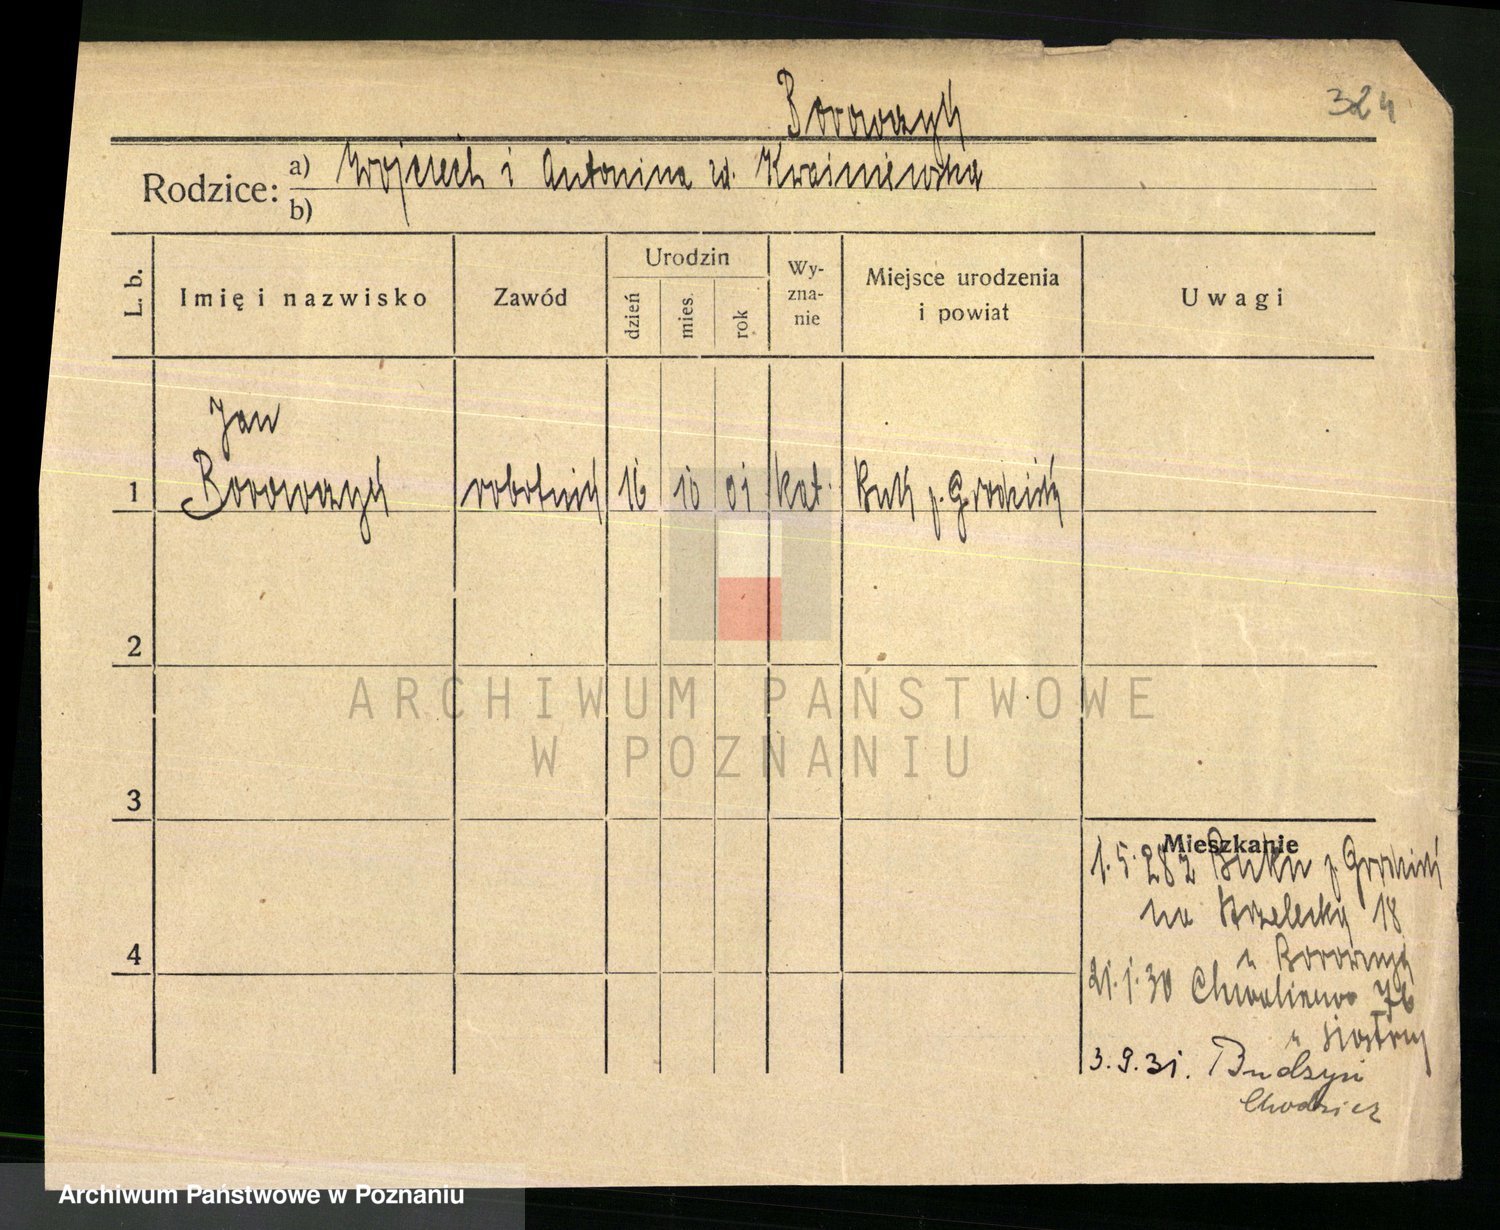 324
Borowczyk
Rodzice: a) Wojciech i Antonina zd. Kraśniewska
b)
L. b. Imię i nazwisko Zawód Urodzin dzień mies. rok Wy-zna-nie Miejsce urodzenia i powiat Uwagi
Jan
1 Borowczyk robotnik 16 10 01 kat. Buk p. Grodzisk
2
ARCHIWUM PAŃSTWOWE
W POZNANIU
3
Mieszkanie
1.5.28 z Buku p. Grodzisk
na Strzelecką 18
4 u
21.1.30 Chwaliszewo 76
u siostry
3.9.31. Budzyń
Chodzież
Archiwum Państwowe w Poznaniu